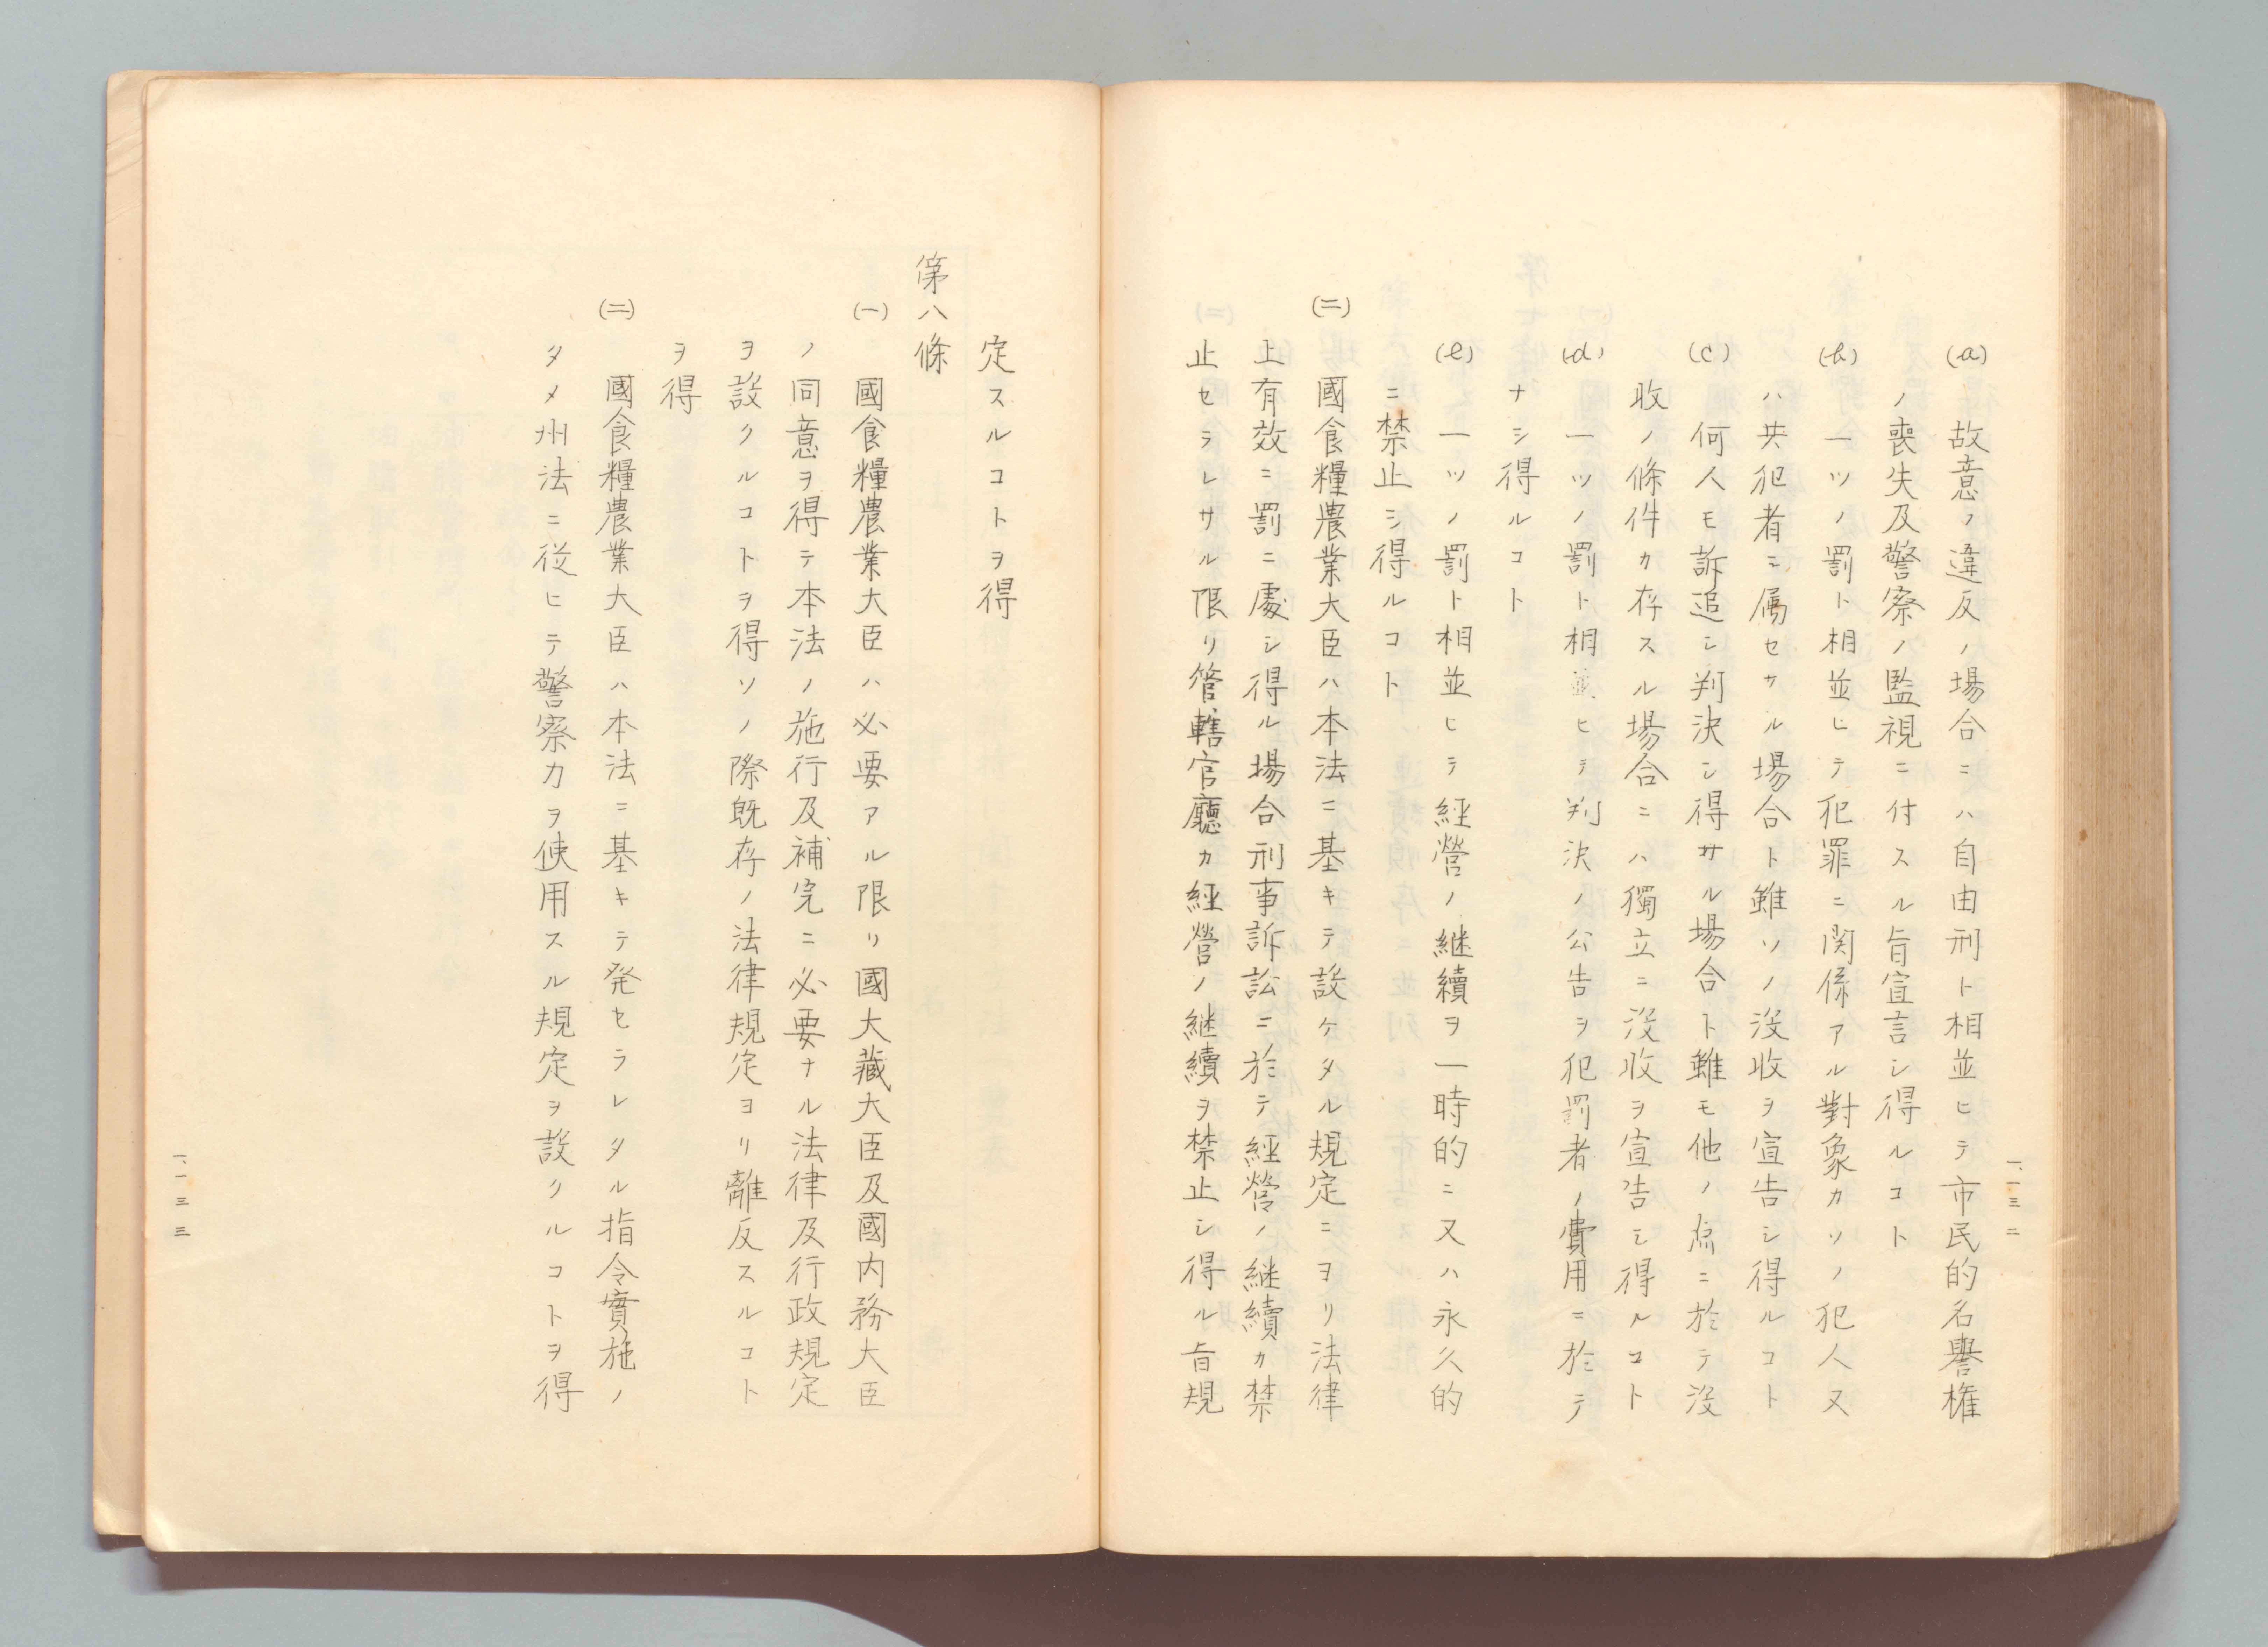 (a) 故意ノ違反ノ場合ニハ自由刑ト相並ヒテ市民的名譽権
ノ喪失及警察ノ監視ニ付スル旨宣言シ得ルコト
(b) 一ツノ罰ト相並ヒテ犯罪ニ関係アル對象カソノ犯人又
ハ共犯者ニ属セサル場合ト雖ソノ没收ヲ宣告シ得ルコト
(c) 何人モ訴追シ判決シ得サル場合ト雖モ他ノ点ニ於テ没
收ノ條件カ存スル場合ニハ獨立ニ没收ヲ宣告シ得ルコト
(d) 一ツノ罰ト相並ヒテ判決ノ公告ヲ犯罰者ノ費用ニ於テ
ナシ得ルコト
(e) 一ツノ罰ト相並ヒテ経營ノ継續ヲ一時的ニ又ハ永久的
ニ禁止シ得ルコト
(二) 國食糧農業大臣ハ本法ニ基キテ設ケタル規定ニヨリ法律
上有效ニ罰ニ處シ得ル場合刑事訴訟ニ於テ経營ノ継續カ禁
止セラレサル限リ管轄官廳カ経營ノ継續ヲ禁止シ得ル旨規
一、一三二
定スルコトヲ得
第八條
(一) 國食糧農業大臣ハ必要アル限リ國大藏大臣及國内務大臣
ノ同意ヲ得テ本法ノ施行及補完ニ必要ナル法律及行政規定
ヲ設クルコトヲ得ソノ際既存ノ法律規定ヨリ離反スルコト
ヲ得
(二) 國食糧農業大臣ハ本法ニ基キテ発セラレタル指令實施ノ
タメ州法ニ従ヒテ警察力ヲ使用スル規定ヲ設クルコトヲ得
一、一三三